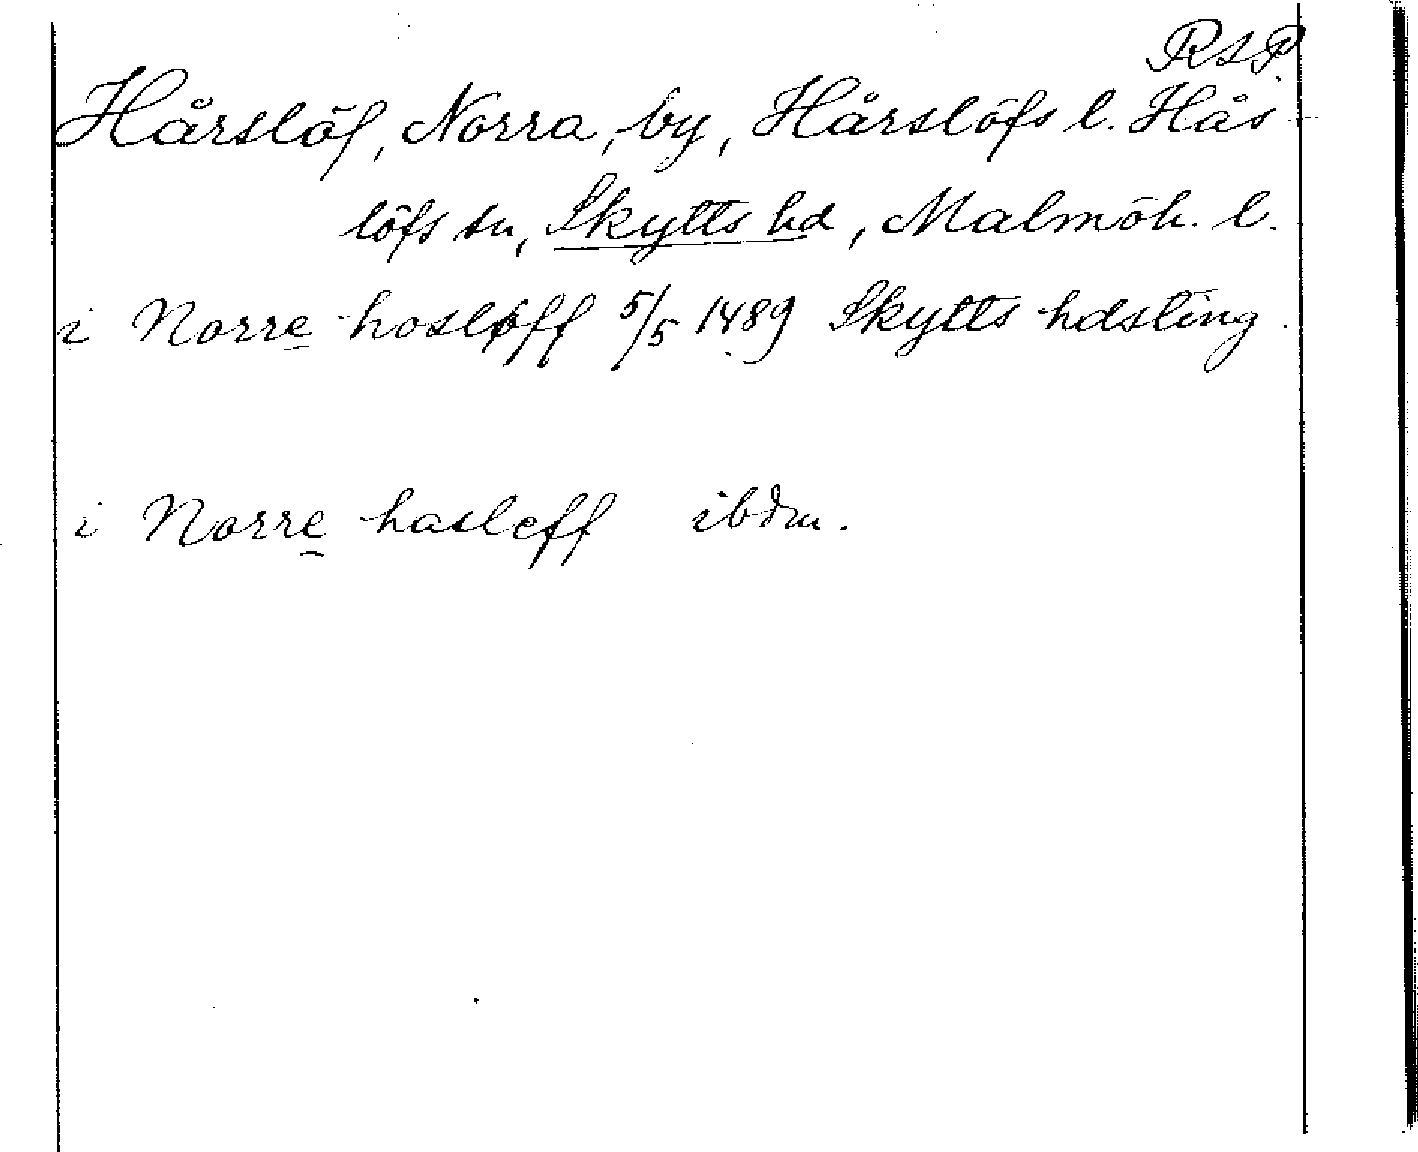 RSP.
Hårslöf, Norra, by, Hårslöfs l. Hås
löfs sn, Skytts hd, Malmöh. l.
i Norre hosløff 5/5 1489 Skytts hdsting.
i Norre hasleff ibdm.